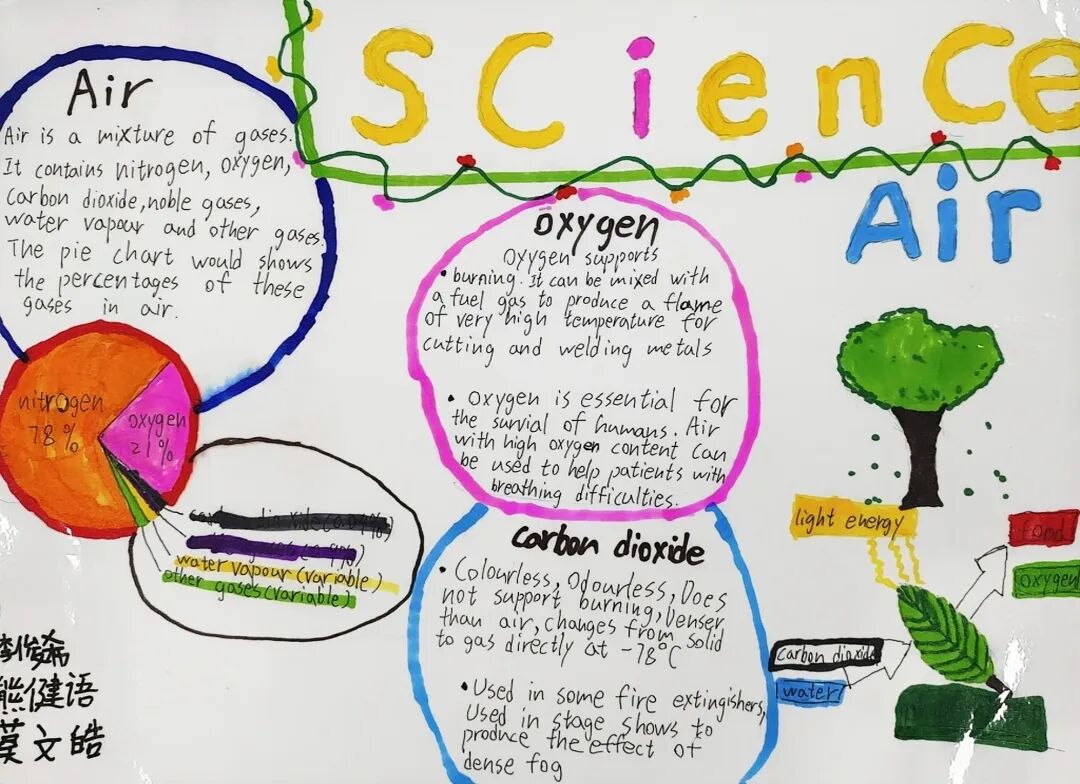 SCience
Air
Air
Air is a mixture of gases.
It contains nitrogen, oxygen,
carbon dioxide, noble gases,
water vapour and other gases.
The pie chart would shows
the percentages of these
gases in air.
nitrogen
78%
oxygen
21%
water vapour (variable)
other gases (variable)
oxygen
Oxygen supports
• burning. It can be mixed with
a fuel gas to produce a flame
of very high temperature for
cutting and welding metals
• Oxygen is essential for
the survial of humans. Air
with high oxygen content can
be used to help patients with
breathing difficulties.
carbon dioxide
• Colourless, Odourless, Does
not support burning, Denser
than air, changes from solid
to gas directly at -78°C
• Used in some fire extingishers,
Used in stage shows to
produce the effect of
dense fog
light energy
food
oxygen
carbon dioxide
water
李俊希
熊健语
莫文皓